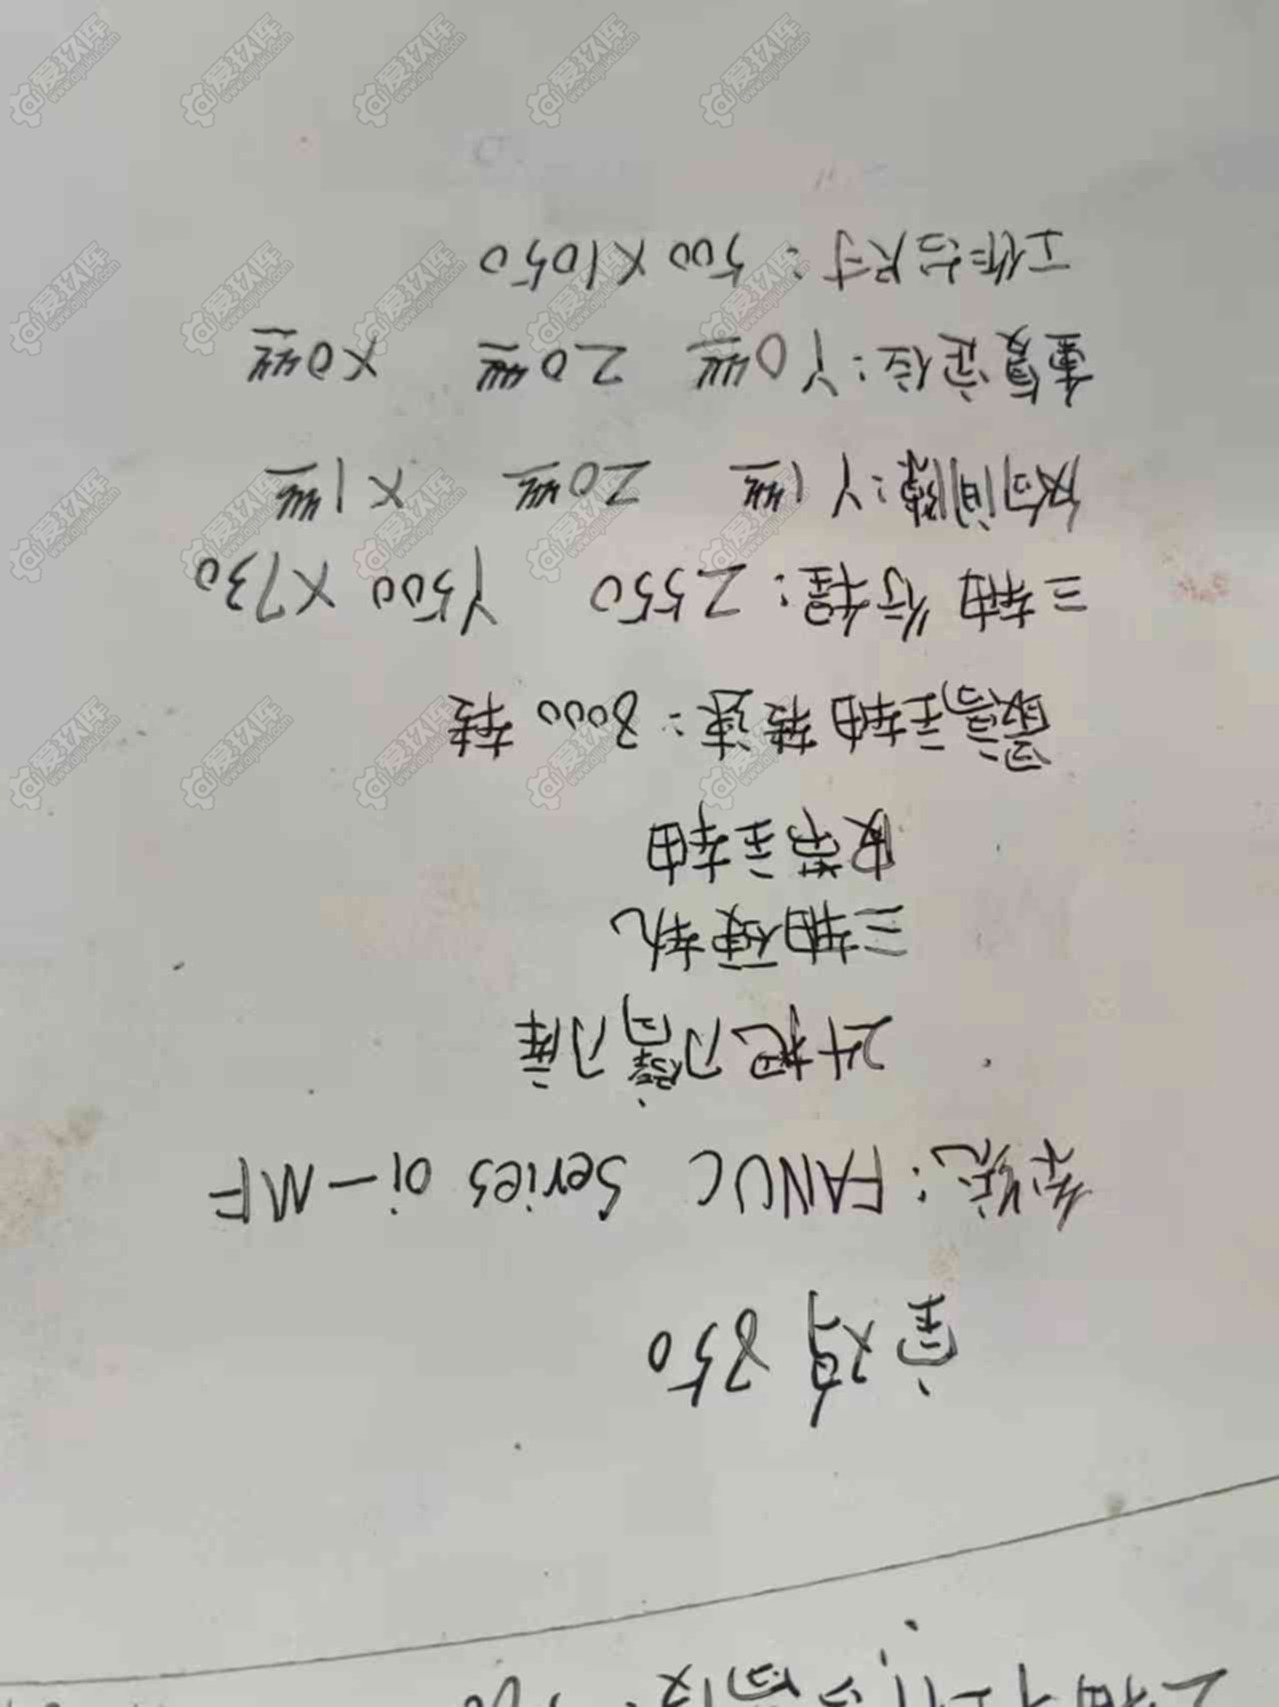 宝鸡 850
系统：FANUC Series oi-MF
24把刀臂刀库
三轴硬轨
皮带主轴
最高主轴转速：8000 转
三轴行程：Z550 Y500 X730
反向间隙：Y1丝 Z0丝 X1丝
重复定位：Y0丝 Z0丝 X0丝
工作台尺寸：500X1050
爱玖库